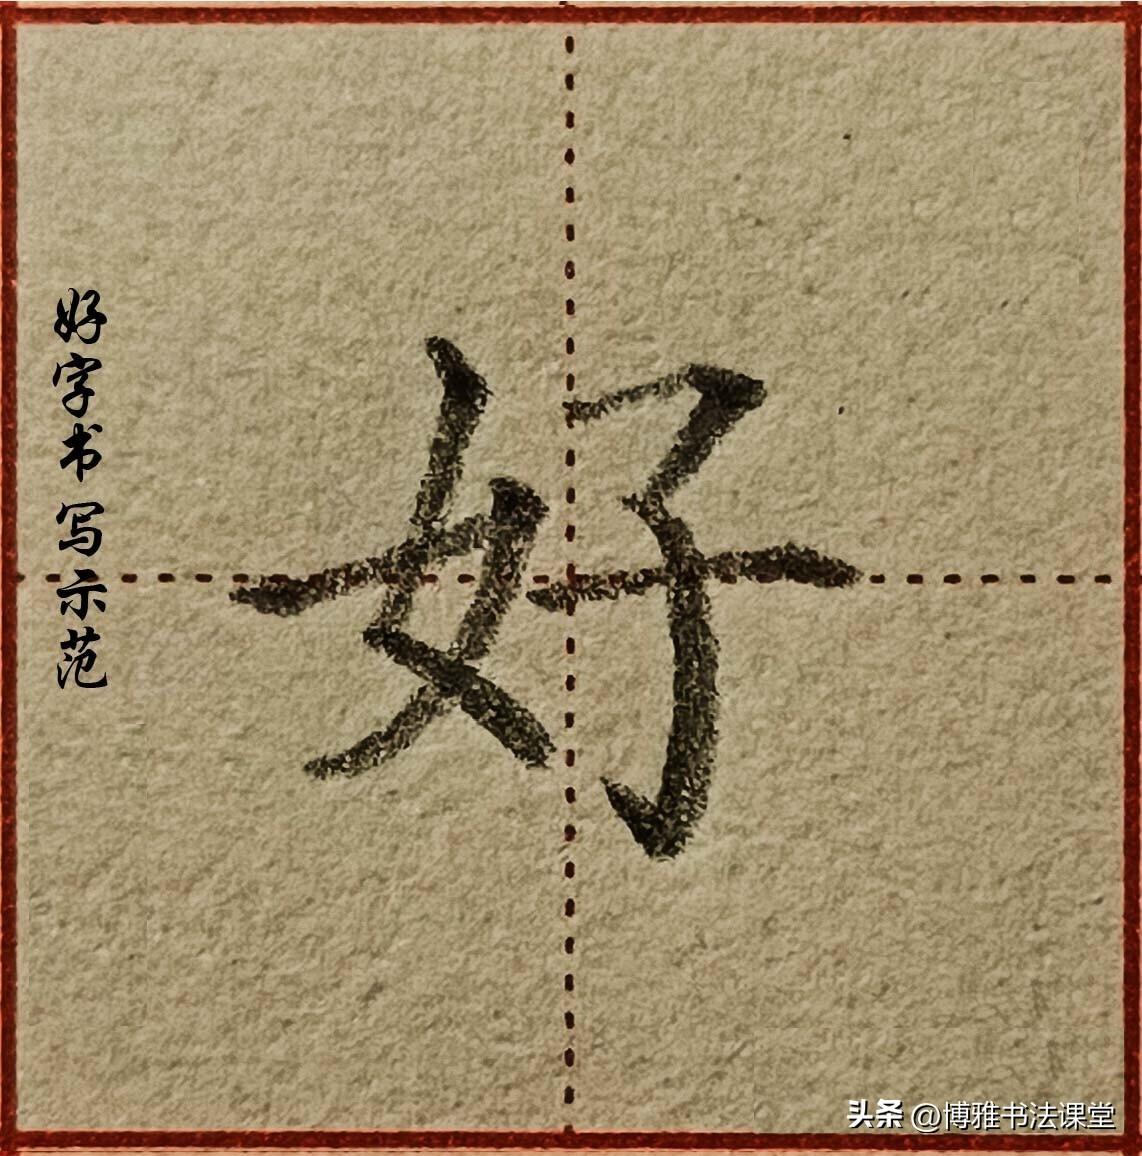 好字书写示范
好
头条 @博雅书法课堂